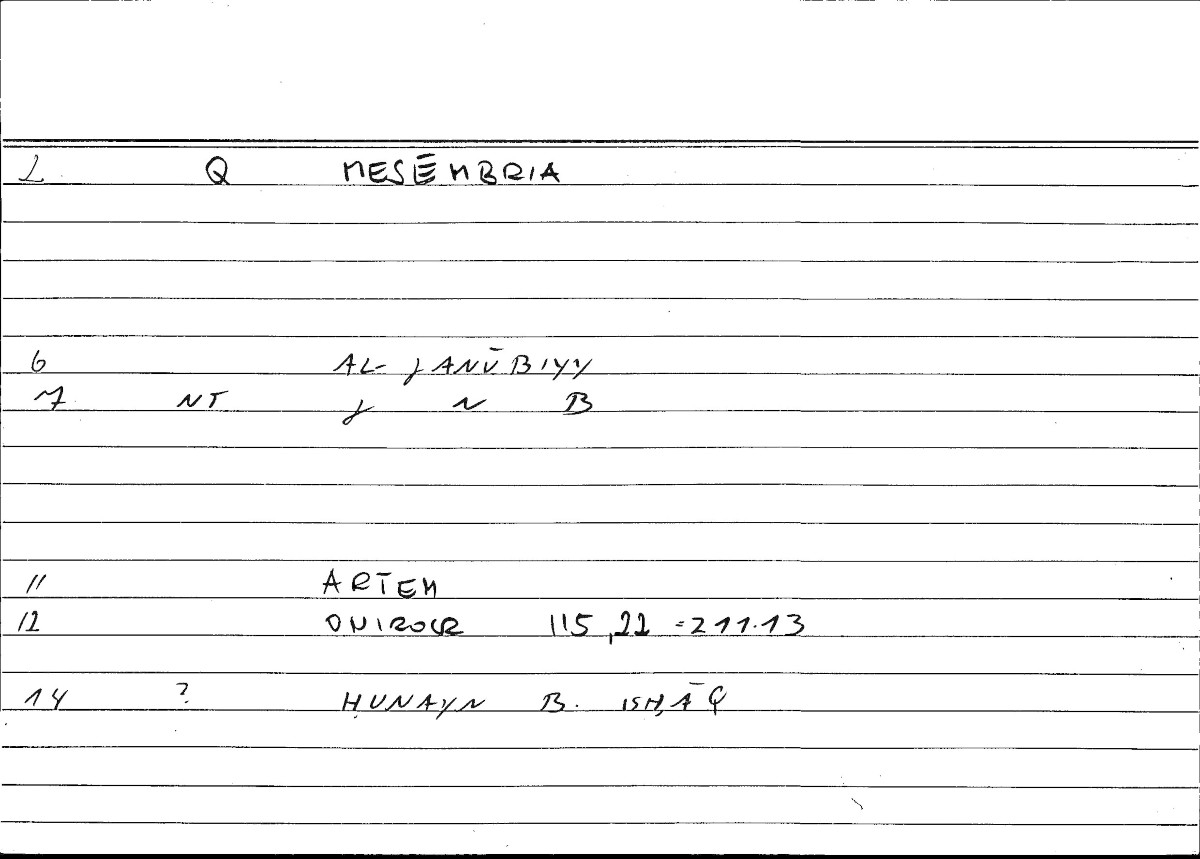 2 Q MESĒMBRIA
6 AL-JANŪBIYY
7 NT J N B
11 ARTEM
12 ONIROCR 115,22 =211.13
14 ? ḤUNAYN B. ISḤĀQ